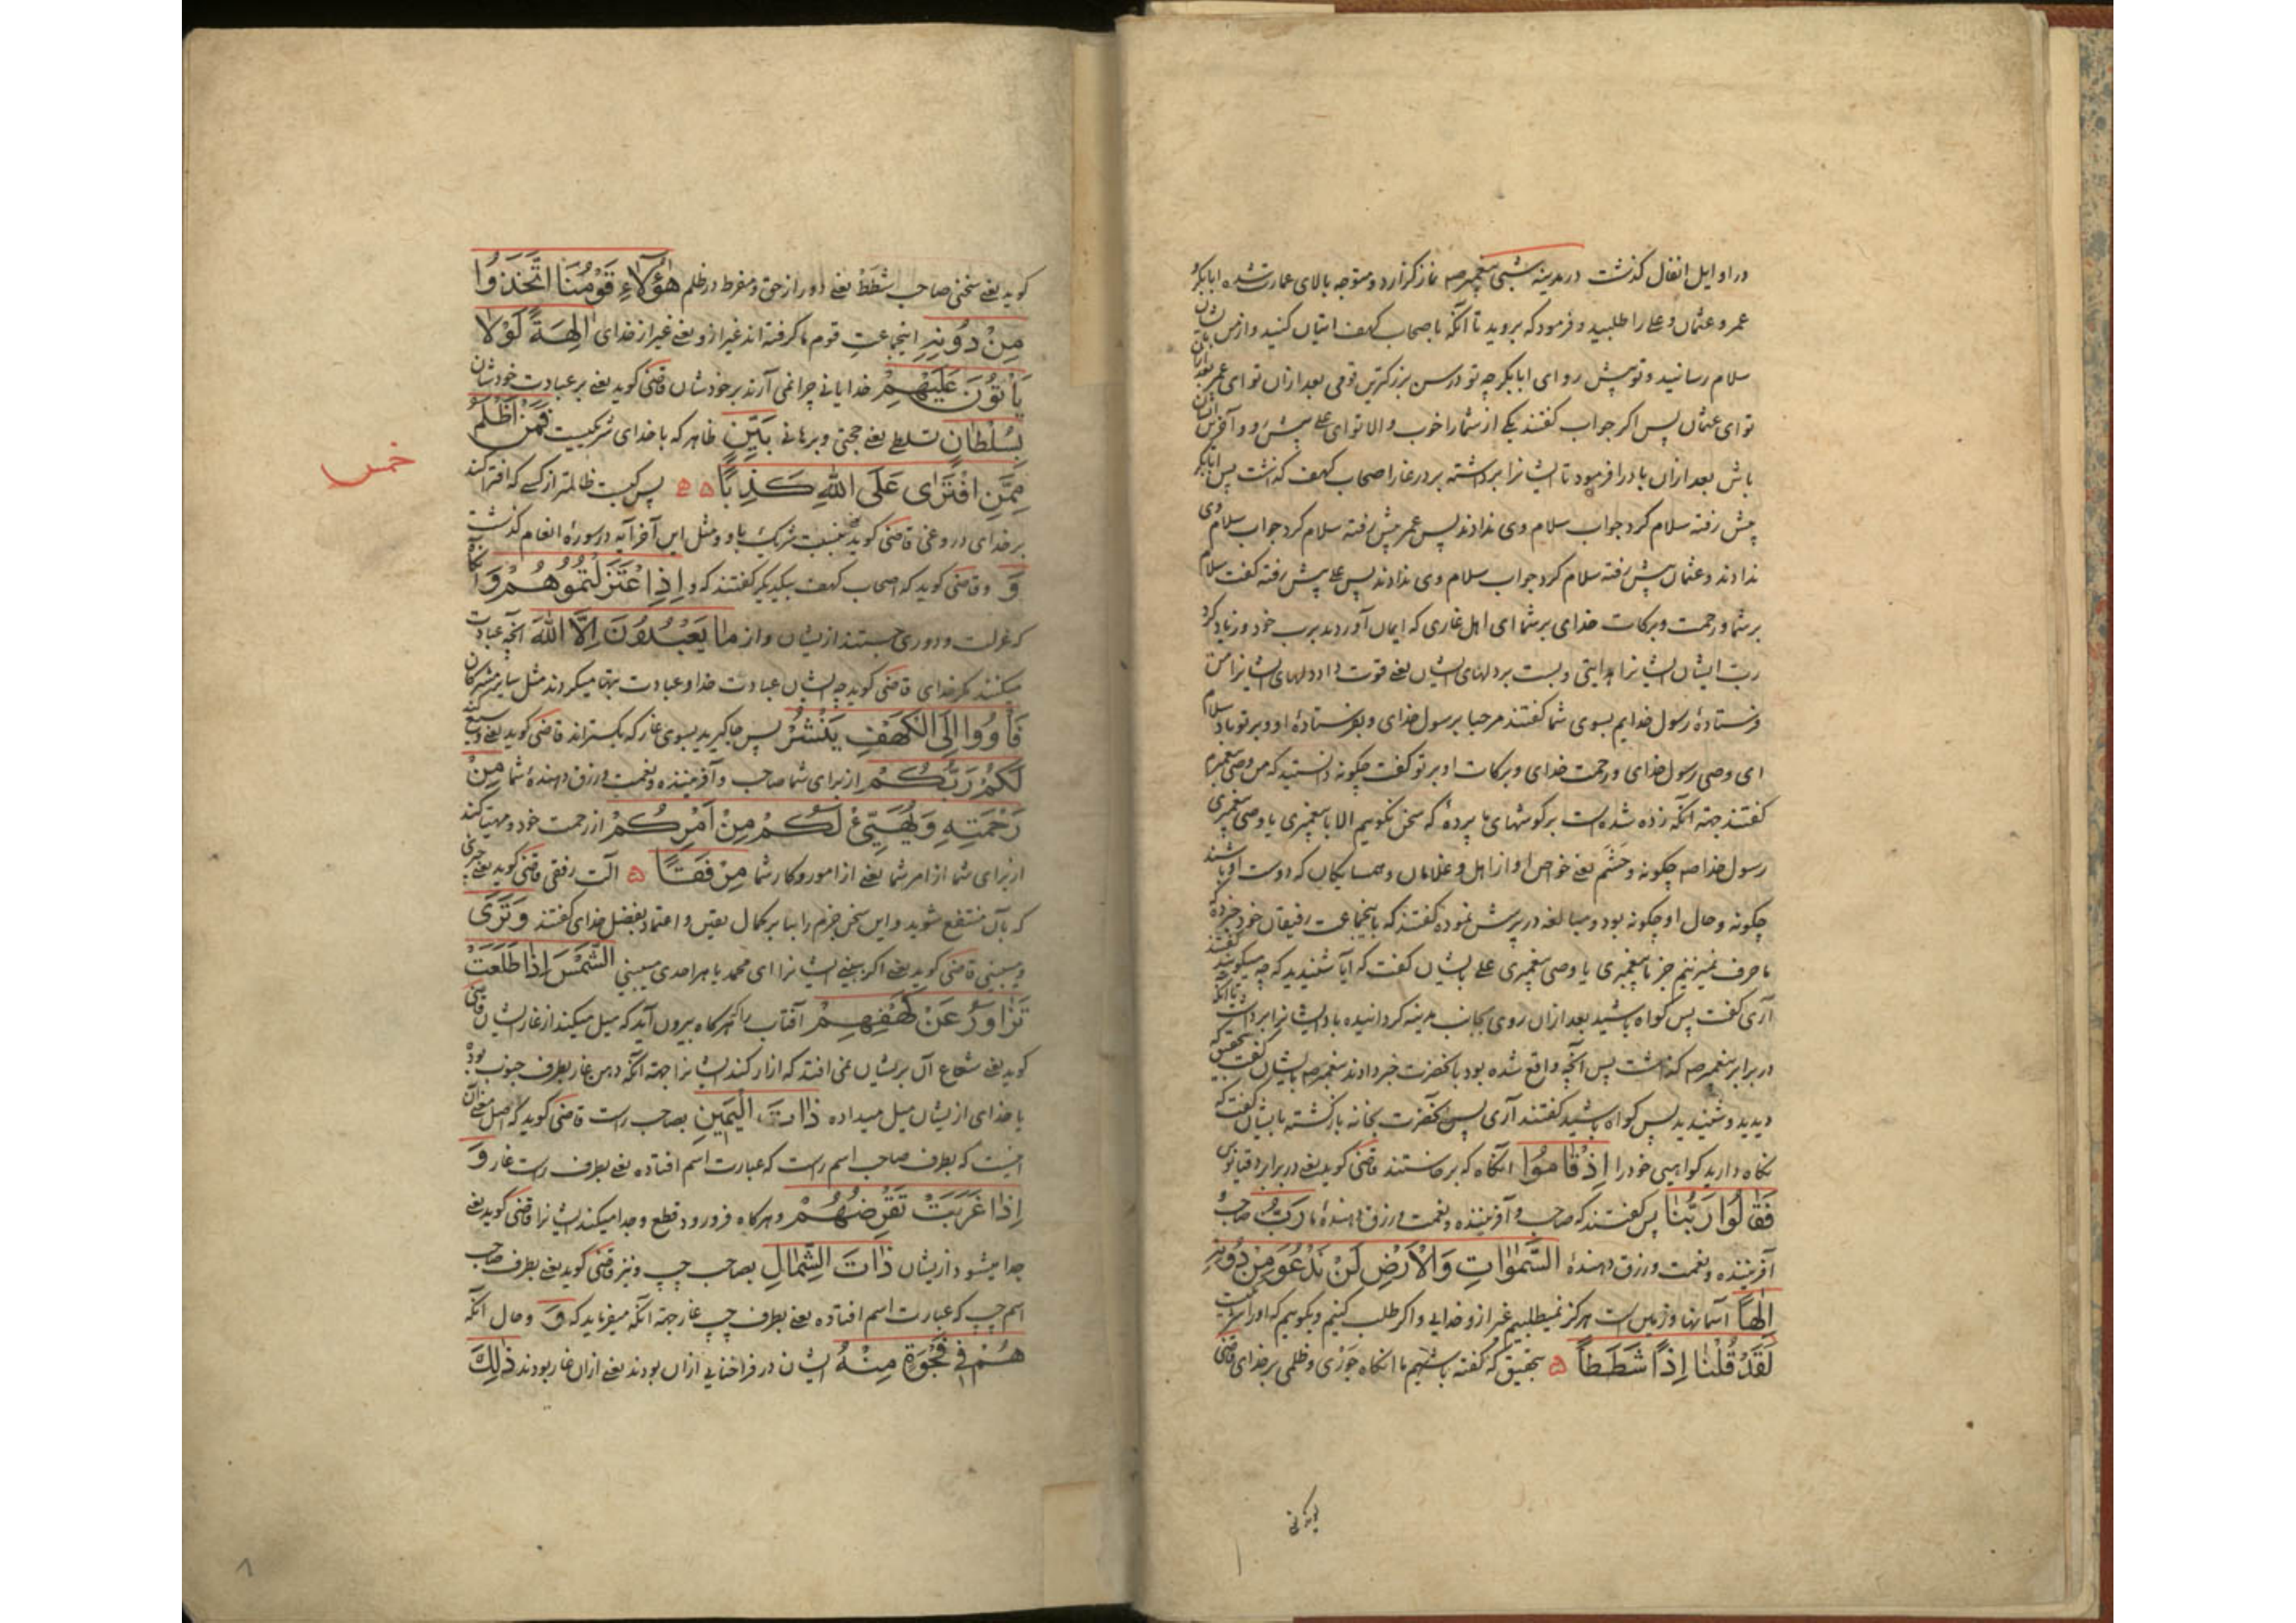 در اوایل انفال گذشت در مدینه شبی پیغمبر صه نماز گزارد و متوجه بالای عمارت شده ابابکر
عمر و عثمان و علی را طلبید و فرمود که بروید تا آنکه باصحاب کهف اتیان کنید و از من بایشان
سلام رسانید و تو پیش رو ای ابابکر چه تو در سن بزرگترین قومی بعد ازان تو ای عمر بعد ازان
تو ای عثمان پس اگر جواب گفتند یکی از شما را خوب و الا تو ای علی پیش رو و آخر ایشان
باش بعد ازان باد را فرمود تا ایشانرا برداشته بر در غار اصحاب کهف گذاشت پس ابابکر
پیش رفته سلام کرد جواب سلام وی ندادند پس عمر پیش رفته سلام کرد جواب سلام وی
ندادند و عثمان پیش رفته سلام کرد جواب سلام وی ندادند پس علی پیش رفته گفت سلام
بر شما و رحمت و برکات خدای بر شما ای اهل غاری که ایمان آوردند برب خود و زیاد کرد
رب ایشان ایشانرا هدایتی و بست بر دلهای ایشان یعنی قوت داد دلهای ایشانرا من
فرستادهٔ رسول خدایم بسوی شما گفتند مرحبا برسول خدای و بفرستادهٔ او و بر تو باد سلام
ای وصی رسول خدای و رحمت خدای و برکات او بر تو گفت چگونه دانستید که من وصی پیغمبرم
گفتند جهة آنکه زده شده است بر گوشهای ما پردهٔ که سخن نگوییم الا با پیغمبری یا وصی پیغمبری
رسول خدا صه چگونه و حشم یعنی خواص او از اهل و غلامان و همسایگان که دوست او باشند
چگونه و حال او چگونه بود و مبالغه در پرسش نموده گفتند که باینجماعت رفیقان خود خبر ده که
ما حرف نمیزنیم جز با پیغمبری یا وصی پیغمبری علی بایشان گفت که آیا شنیدید که چه میگویند گفتند
آری گفت پس گواه باشید بعد ازان روی بجانب مدینه گردانیده باد ایشانرا برداشت تا آنکه
در برابر پیغمبر صه گذاشت پس آنچه واقع شده بود بآنحضرت خبر دادند پیغمبر صه بایشان گفت بتحقیق که
دیدید و شنیدید پس گواه باشید گفتند آری پس آنحضرت بخانه بازگشته بایشان گفت که
نگاه دارید گواهی خود را اِذْ قَامُوا آنگاه که برخاستند قاضی گوید یعنی در برابر دقیانوس
فَقَالُوا رَبُّنَا پس گفتند که صاحب و آفریننده و نعمت و رزق دهندهٔ ما رَبُّ صاحب و
آفریننده و نعمت و رزق دهندهٔ السَّمٰوَاتِ وَالْاَرْضِ لَنْ نَدْعُوَ مِنْ دُونِهِ
اِلٰهاً آسمانها و زمین است هرگز نمیطلبیم غیر از و خدایی و اگر طلب کنیم و بگوییم که او را شریکیست
لَقَدْ قُلْنَا اِذاً شَطَطاً ۵ بتحقیق که گفته باشیم ما آنگاه جوری و ظلمی بر خدای قاضی
گوید یعنی سخنی صاحب شطط یعنی دور از حق و مفرط در ظلم هٰؤُلَاءِ قَوْمُنَا اتَّخَذُوا
مِنْ دُونِهِ اینجماعت قوم ما گرفته اند غیر از و یعنی غیر از خدای اٰلِهَةً لَوْلَا
يَأْتُونَ عَلَيْهِمْ خدایانی چرا نمی آرند بر خودشان قاضی گوید یعنی بر عبادت خودشان
بِسُلْطَانٍ تسلطی یعنی حجتی و برهانی بَيِّنٍ ظاهر که با خدای شریکیست فَمَنْ اَظْلَمُ
مِمَّنِ افْتَرٰى عَلَى اللهِ كَذِباً ۵ ۵ پس کیست ظالمتر از کسی که افترا کند
خمس
بر خدای دروغی قاضی گوید بنسبت شریک باو و مثل این آخر آیه در سورهٔ انعام گذشت
وَ و قاضی گوید که اصحاب کهف بیکدیگر گفتند که و اِذِ اعْتَزَلْتُمُوهُمْ وَ آنگاه
که عزلت و دوری جستند ازیشان و از مَا يَعْبُدُونَ اِلَّا اللهَ آنچه عبادت
میکنند مگر خدای قاضی گوید چه ایشان عبادت خدا و عبادت بتها میکردند مثل سایر مشرکان
فَأْوُوا اِلَى الْكَهْفِ يَنْشُرْ پس جا گیرید بسوی غار که بگستراند قاضی گوید یعنی وسیع کند
لَكُمْ رَبُّكُمْ از برای شما صاحب و آفریننده و نعمت و رزق دهندهٔ شما مِنْ
رَحْمَتِهِ وَيُهَيِّئْ لَكُمْ مِنْ اَمْرِكُمْ از رحمت خود و مهیا کند
از برای شما از امر شما یعنی از امور و کار شما مِرْفَقاً ۵ آلت رفقی قاضی گوید یعنی چیزی
که بآن منتفع شوید و این سخن جزم را بنا بر کمال یقین و اعتماد بفضل خدای گفتند وَتَرَى
و میبینی قاضی گوید یعنی اگر ببینی ایشانرا ای محمد یا هر احدی میبینی الشَّمْسَ اِذَا طَلَعَتْ
تَزَاوَرُ عَنْ كَهْفِهِمْ آفتاب را که هرگاه بیرون آید که میل میکند از غار ایشان قاضی
گوید یعنی شعاع آن بریشان نمی افتد که آزار کند ایشانرا جهة آنکه دهن غار بطرف جنوب بوده
یا خدای ازیشان میل میداده ذَاتَ الْيَمِينِ بصاحب راست قاضی گوید که اصل معنی آن
اینست که بطرف صاحب اسم راست که عبارت اسم افتاده یعنی بطرف راست غار وَ
اِذَا غَرَبَتْ تَقْرِضُهُمْ و هرگاه فرو رود قطع و جدا میکند ایشانرا قاضی گوید یعنی
جدا میشود ازیشان ذَاتَ الشِّمَالِ بصاحب چپ و نیز قاضی گوید یعنی بطرف صاحب
اسم چپ که عبارت اسم افتاده یعنی بطرف چپ غار جهة آنکه میفرماید که وَ و حال آنکه
هُمْ فِي فَجْوَةٍ مِنْهُ ایشان در فراخنایی ازان بودند یعنی ازان غار بودند ذٰلِكَ